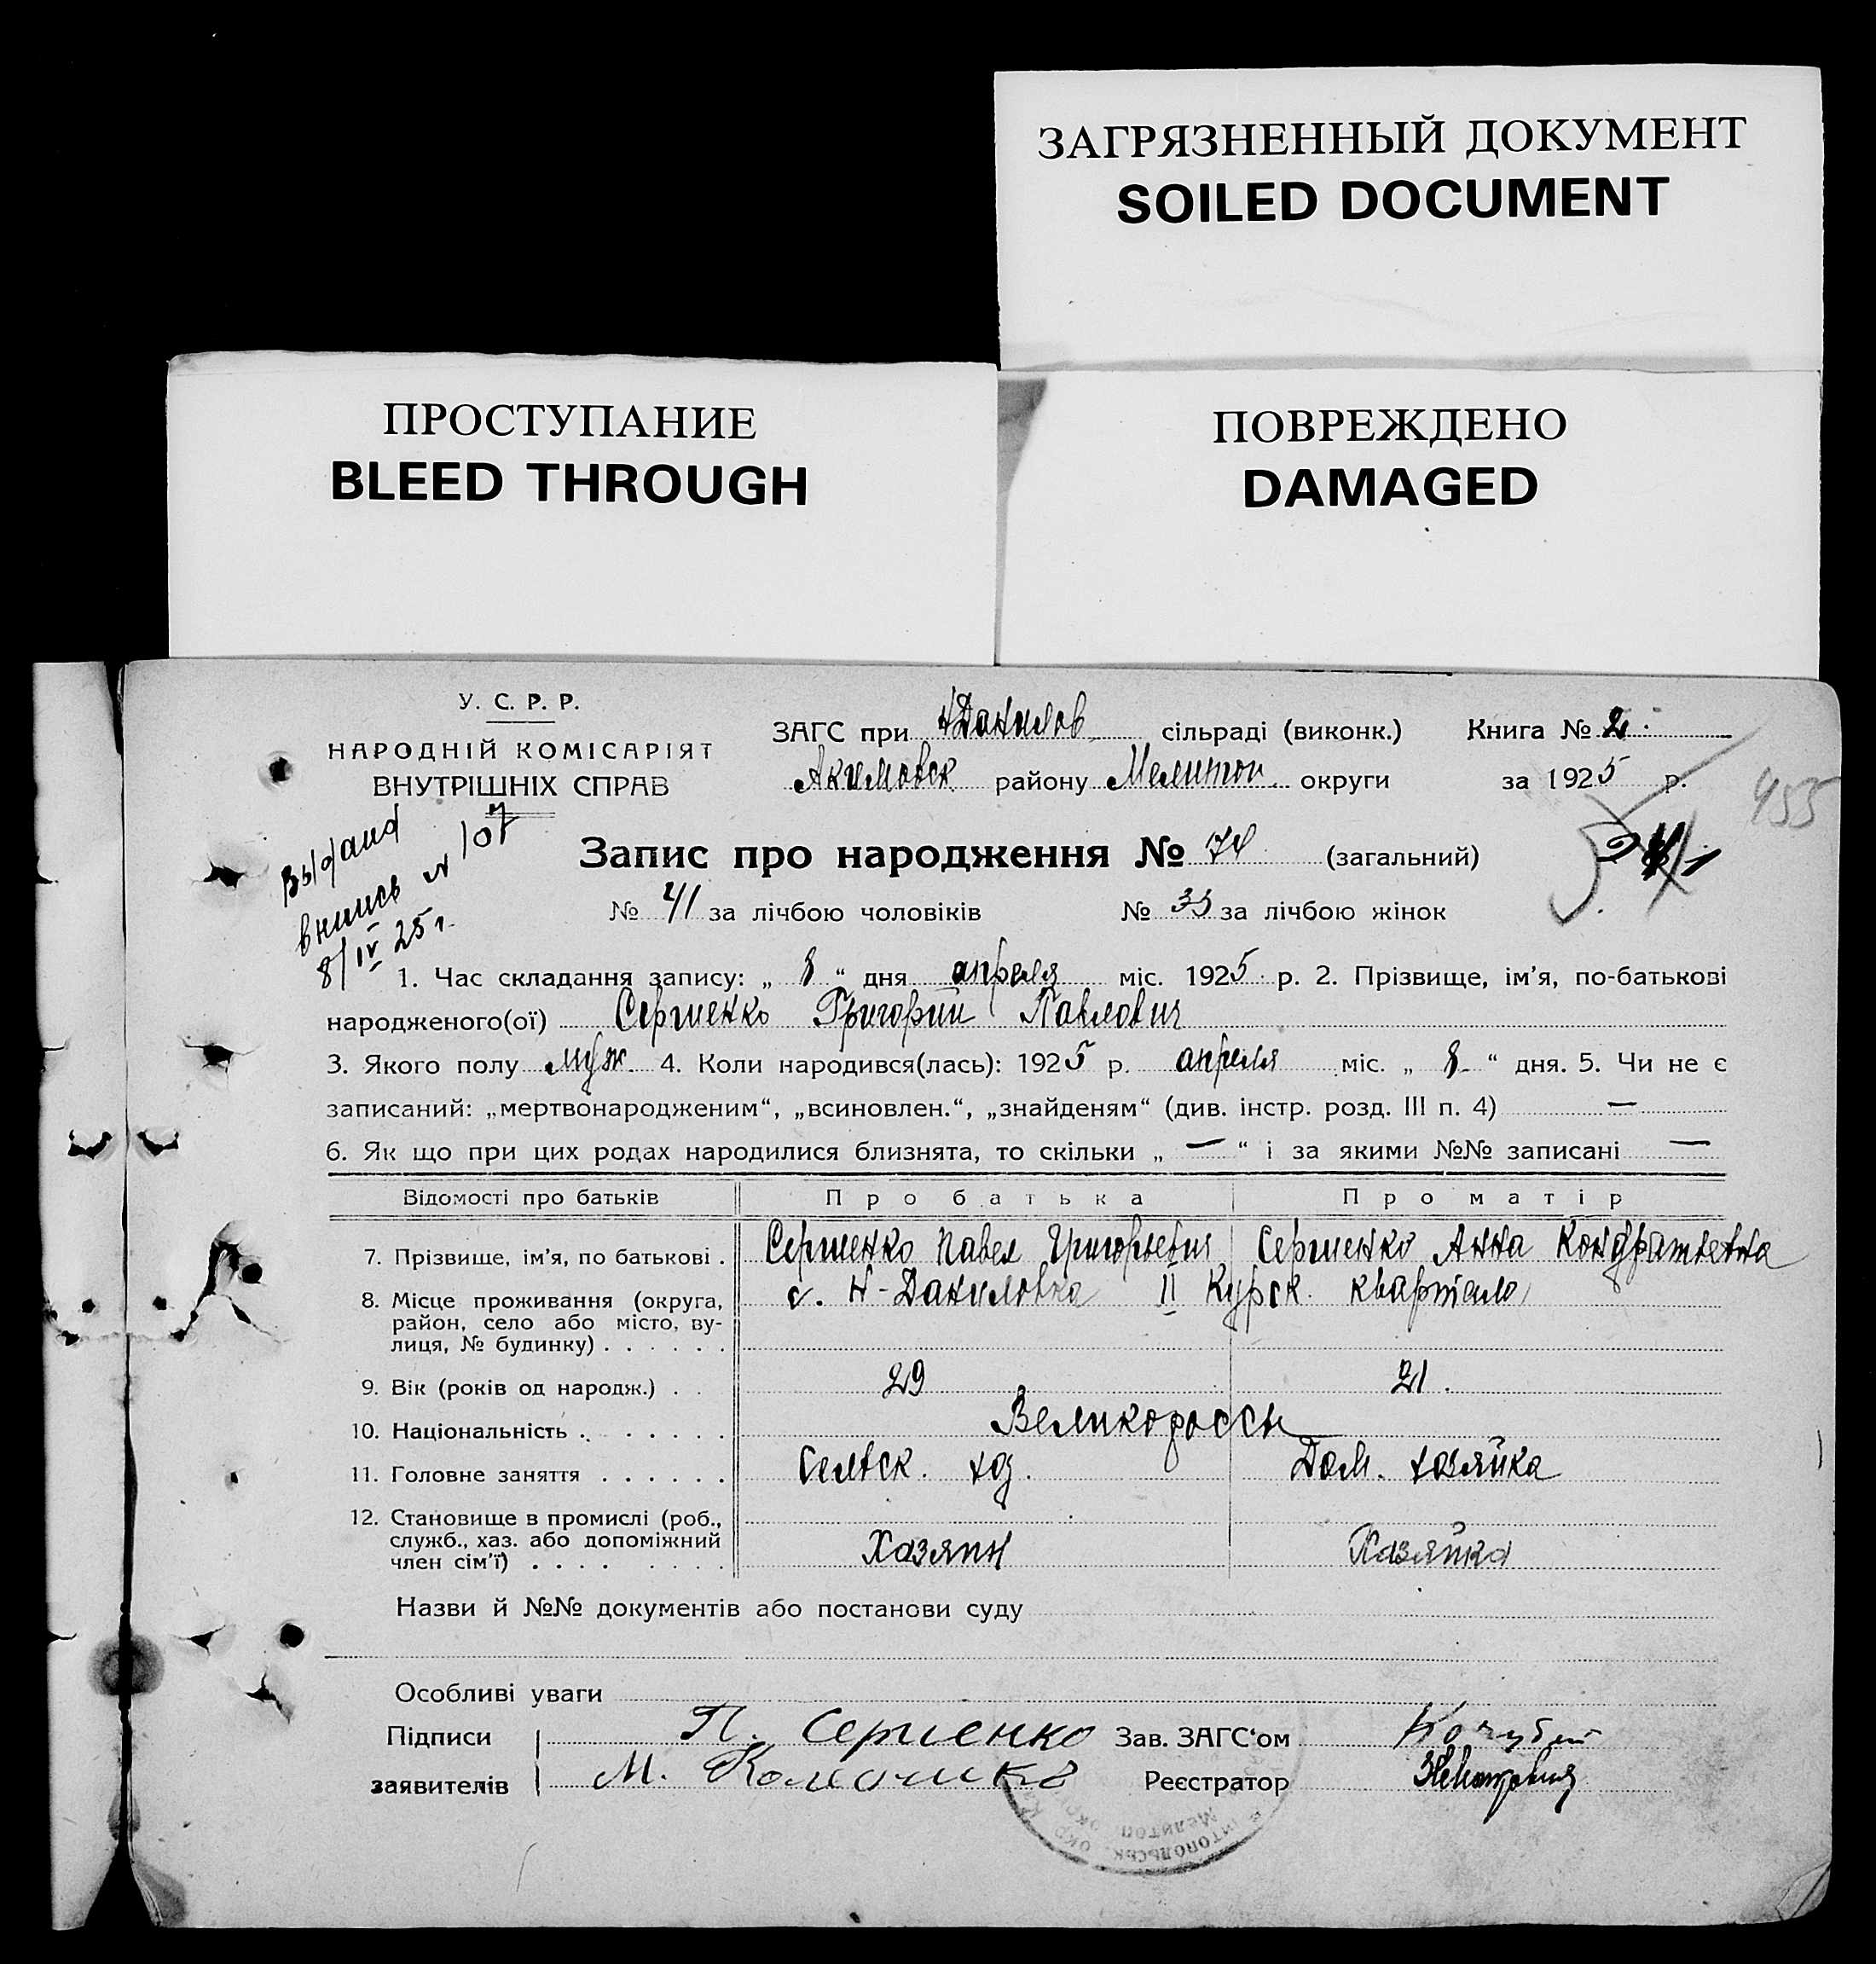 ЗАГРЯЗНЕННЫЙ ДОКУМЕНТ
SOILED DOCUMENT
ПРОСТУПАНИЕ
BLEED THROUGH
ПОВРЕЖДЕНО
DAMAGED
У. С. Р. Р.
НАРОДНІЙ КОМІСАРІЯТ
ВНУТРІШНІХ СПРАВ
ЗАГС при Н Данилов. сільраді (виконк.) Книга № 2.
Акимовск. району Мелитоп. округи за 1925 р.
455
Выдана
выпись № 107
8/IV 25 г.
Запис про народження № 74 (загальний)
№ 41 за лічбою чоловіків № 33 за лічбою жінок
1. Час складання запису: „ 8 “ дня апреля міс. 1925 р. 2. Прізвище, ім'я, по-батькові
народженого(ої) Сергиенко Григорий Павлович
3. Якого полу муж. 4. Коли народився(лась): 1925 р. апреля міс. „ 8 “ дня. 5. Чи не є
записаний: „мертвонародженим“, „всиновлен.“, „знайденям“ (див. інстр. розд. III п. 4) —
6. Як що при цих родах народилися близнята, то скільки „ — “ і за якими №№ записані —
Відомості про батьків Про батька Про матір
7. Прізвище, ім'я, по батькові . Сергиенко Павел Григорьевич Сергиенко Анна Кондратьевна
8. Місце проживання (округа, район, село або місто, вулиця, № будинку) . . . . . . с. Н-Даниловка II Курск. квартало
9. Вік (років од народж.) . . 29 21.
10. Національність . . . . . . Великороссы
11. Головне заняття . . . . . . Сельск. хоз. Дом. хозяйка
12. Становище в промислі (роб., служб., хаз. або допоміжний член сім'ї) . . . . . . . . Хазяин Хазяйка
Назви й №№ документів або постанови суду
Особливі уваги
Підписи П. Сергиенко Зав. ЗАГС'ом Кочубей
заявителів М. Реєстратор